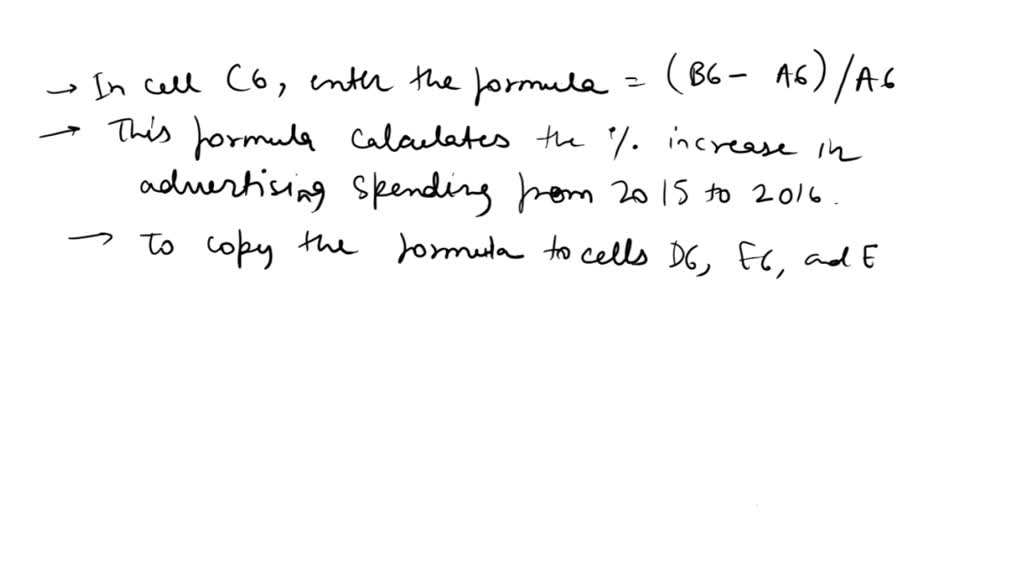 → In cell C6, enter the formula = (B6 - A6)/A6
→ This formula calculates the % increase in
advertising spending from 2015 to 2016.
→ To copy the formula to cells D6, E6, and E